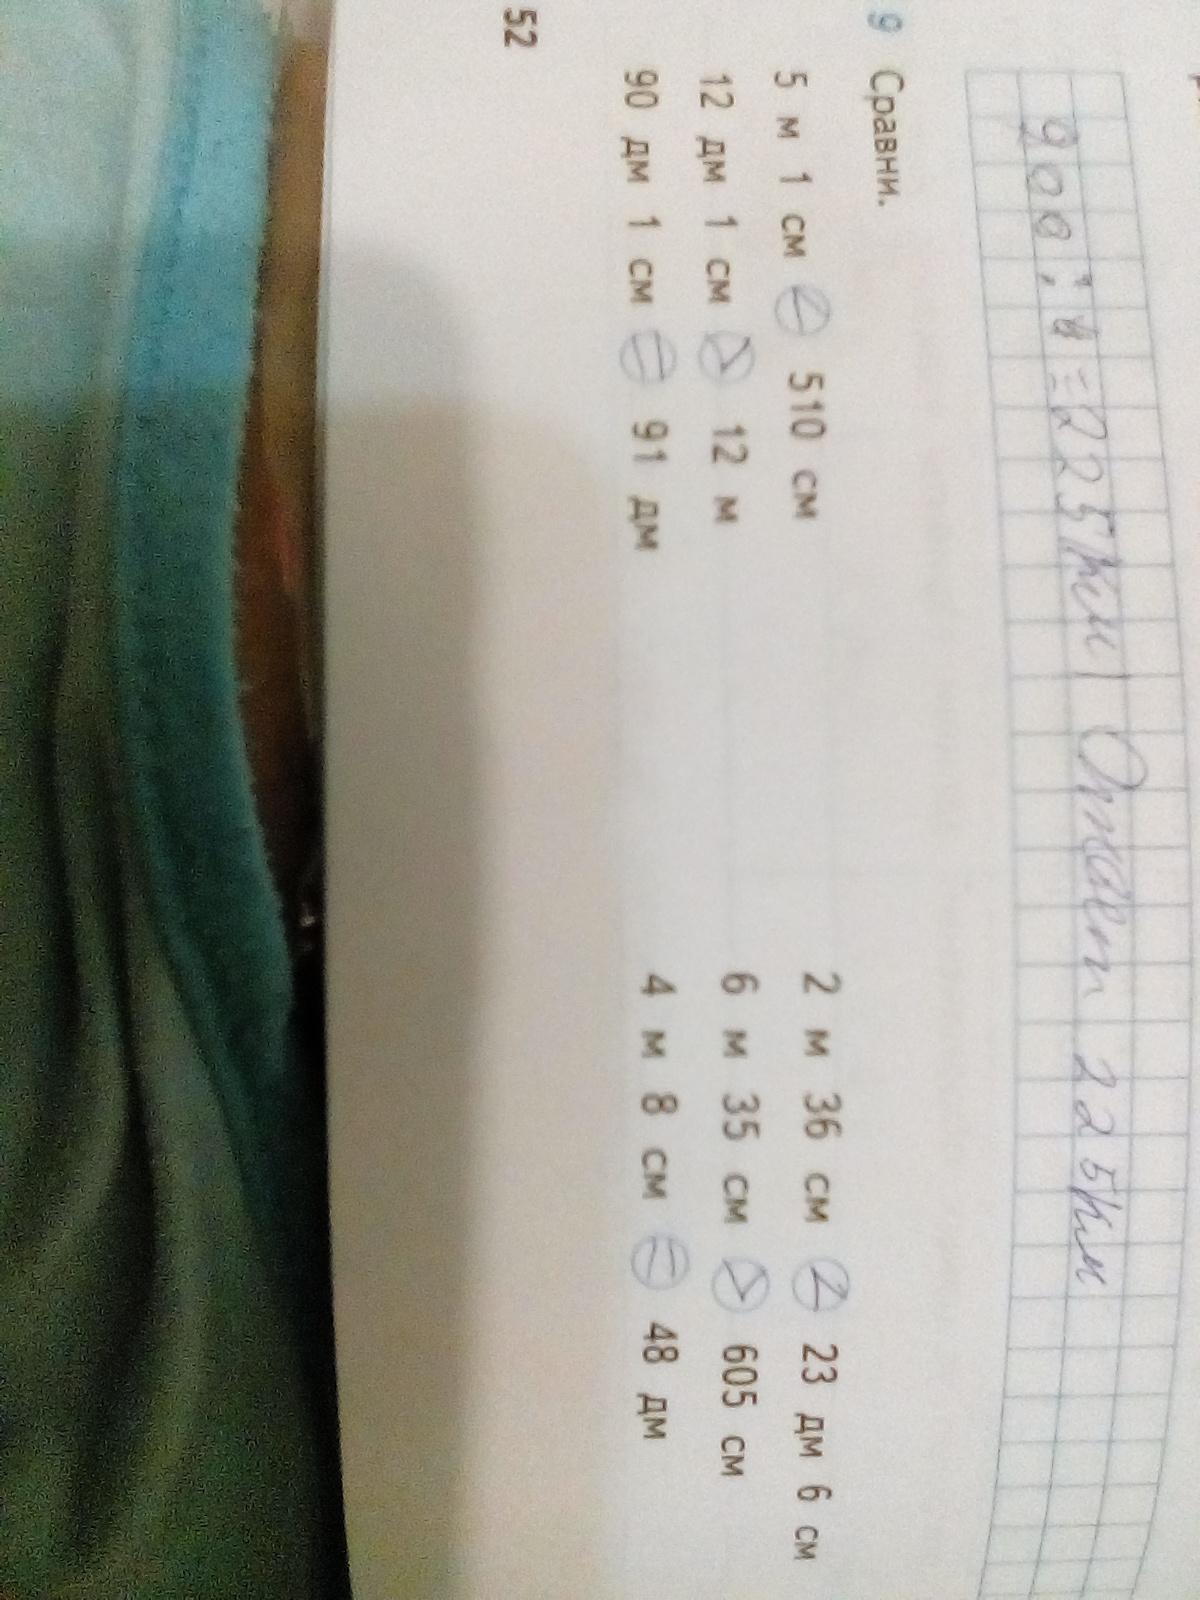 900 : 4 = 225(км) Ответ 225км
9 Сравни.
5 м 1 см < 510 см 2 м 36 см < 23 дм 6 см
12 дм 1 см > 12 м 6 м 35 см > 605 см
90 дм 1 см = 91 дм 4 м 8 см = 48 дм
52